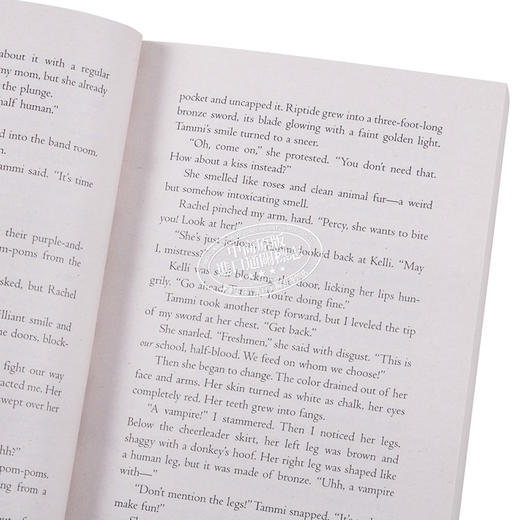 about it with a regular
my mom, but she already
the plunge.
half human."
into the band room.
ammi said. "It's time
their purple-and-
om-poms from the
asked, but Rachel
illiant smile and
he doors, block-
fight our way
acted me. Her
swept over her
hh?"
om-poms.
ing from a
pocket and uncapped it. Riptide grew into a three-foot-long
bronze sword, its blade glowing with a faint golden light.
Tammi's smile turned to a sneer.
"Oh, come on," she protested. "You don't need that.
How about a kiss instead?"
She smelled like roses and clean animal fur—a weird
but somehow intoxicating smell.
Rachel pinched my arm, hard. "Percy, she wants to bite
you! Look at her!"
"She's just jealous." Tammi looked back at Kelli. "May
I, mistress?"
Kelli was still blocking the door, licking her lips hun-
grily. "Go ahead, Tammi. You're doing fine."
Tammi took another step forward, but I leveled the tip
of my sword at her chest. "Get back."
She snarled. "Freshmen," she said with disgust. "This is
our school, half-blood. We feed on whom we choose!"
Then she began to change. The color drained out of her
face and arms. Her skin turned as white as chalk, her eyes
completely red. Her teeth grew into fangs.
"A vampire!" I stammered. Then I noticed her legs.
Below the cheerleader skirt, her left leg was brown and
shaggy with a donkey's hoof. Her right leg was shaped like
a human leg, but it was made of bronze. "Uhh, a vampire
with—"
"Don't mention the legs!" Tammi snapped. "It's
make fun!"
She